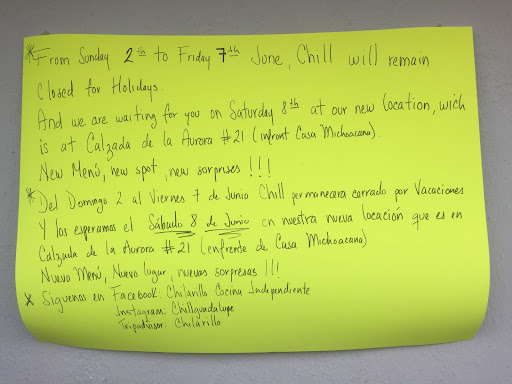 *From Sunday 2th to Friday 7th June, Chill will remain
Closed for Holidays.
And we are waiting for you on Saturday 8th at our new location, wich
is at Calzada de la Aurora #21 (infront Casa Michoacana).
New Menú, new spot, new sorprises !!!
*Del Domingo 2 al Viernes 7 de Junio Chill permanecera cerrado por Vacaciones
Y los esperamos el Sábado 8 de Junio en nuestra nueva locación que es en
Calzada de la Aurora #21 (enfrente de Casa Michoacana)
Nuevo Menú, Nuevo lugar, nuevas sorpresas !!!
* Siguenos en Facebook: Chilarillo Cocina Independiente
Instagram: Chillguadalupe
Tripadvisor: Chilarillo